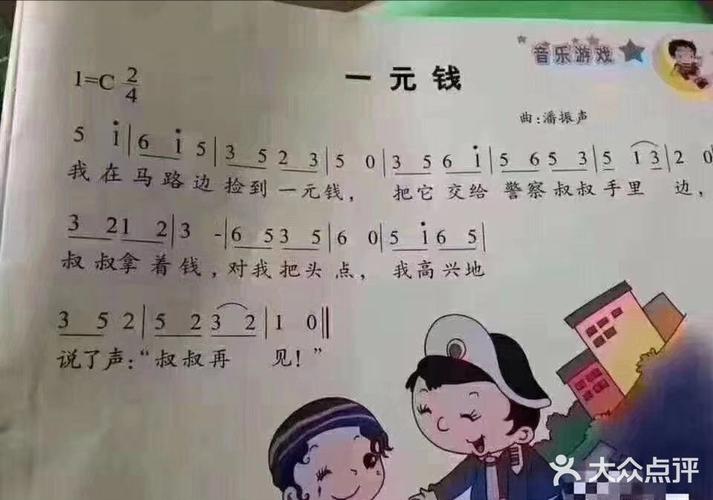 音乐游戏
一元钱
1=C 2/4
曲:潘振声
5 i̇|6 i̇ 5|3 5 2 3|5 0|3 5 6 i̇|5 6 5 3|5 1 3|2 0
我在马路边捡到一元钱， 把它交给警察叔叔手里边，
3 2 1 2|3 -|6 5 3 5|6 0|5 i̇ 6 5|
叔叔拿着钱，对我把头点， 我高兴地
3 5 2|5 2 3 2|1 0‖
说了声:“叔叔再 见!”
大众点评